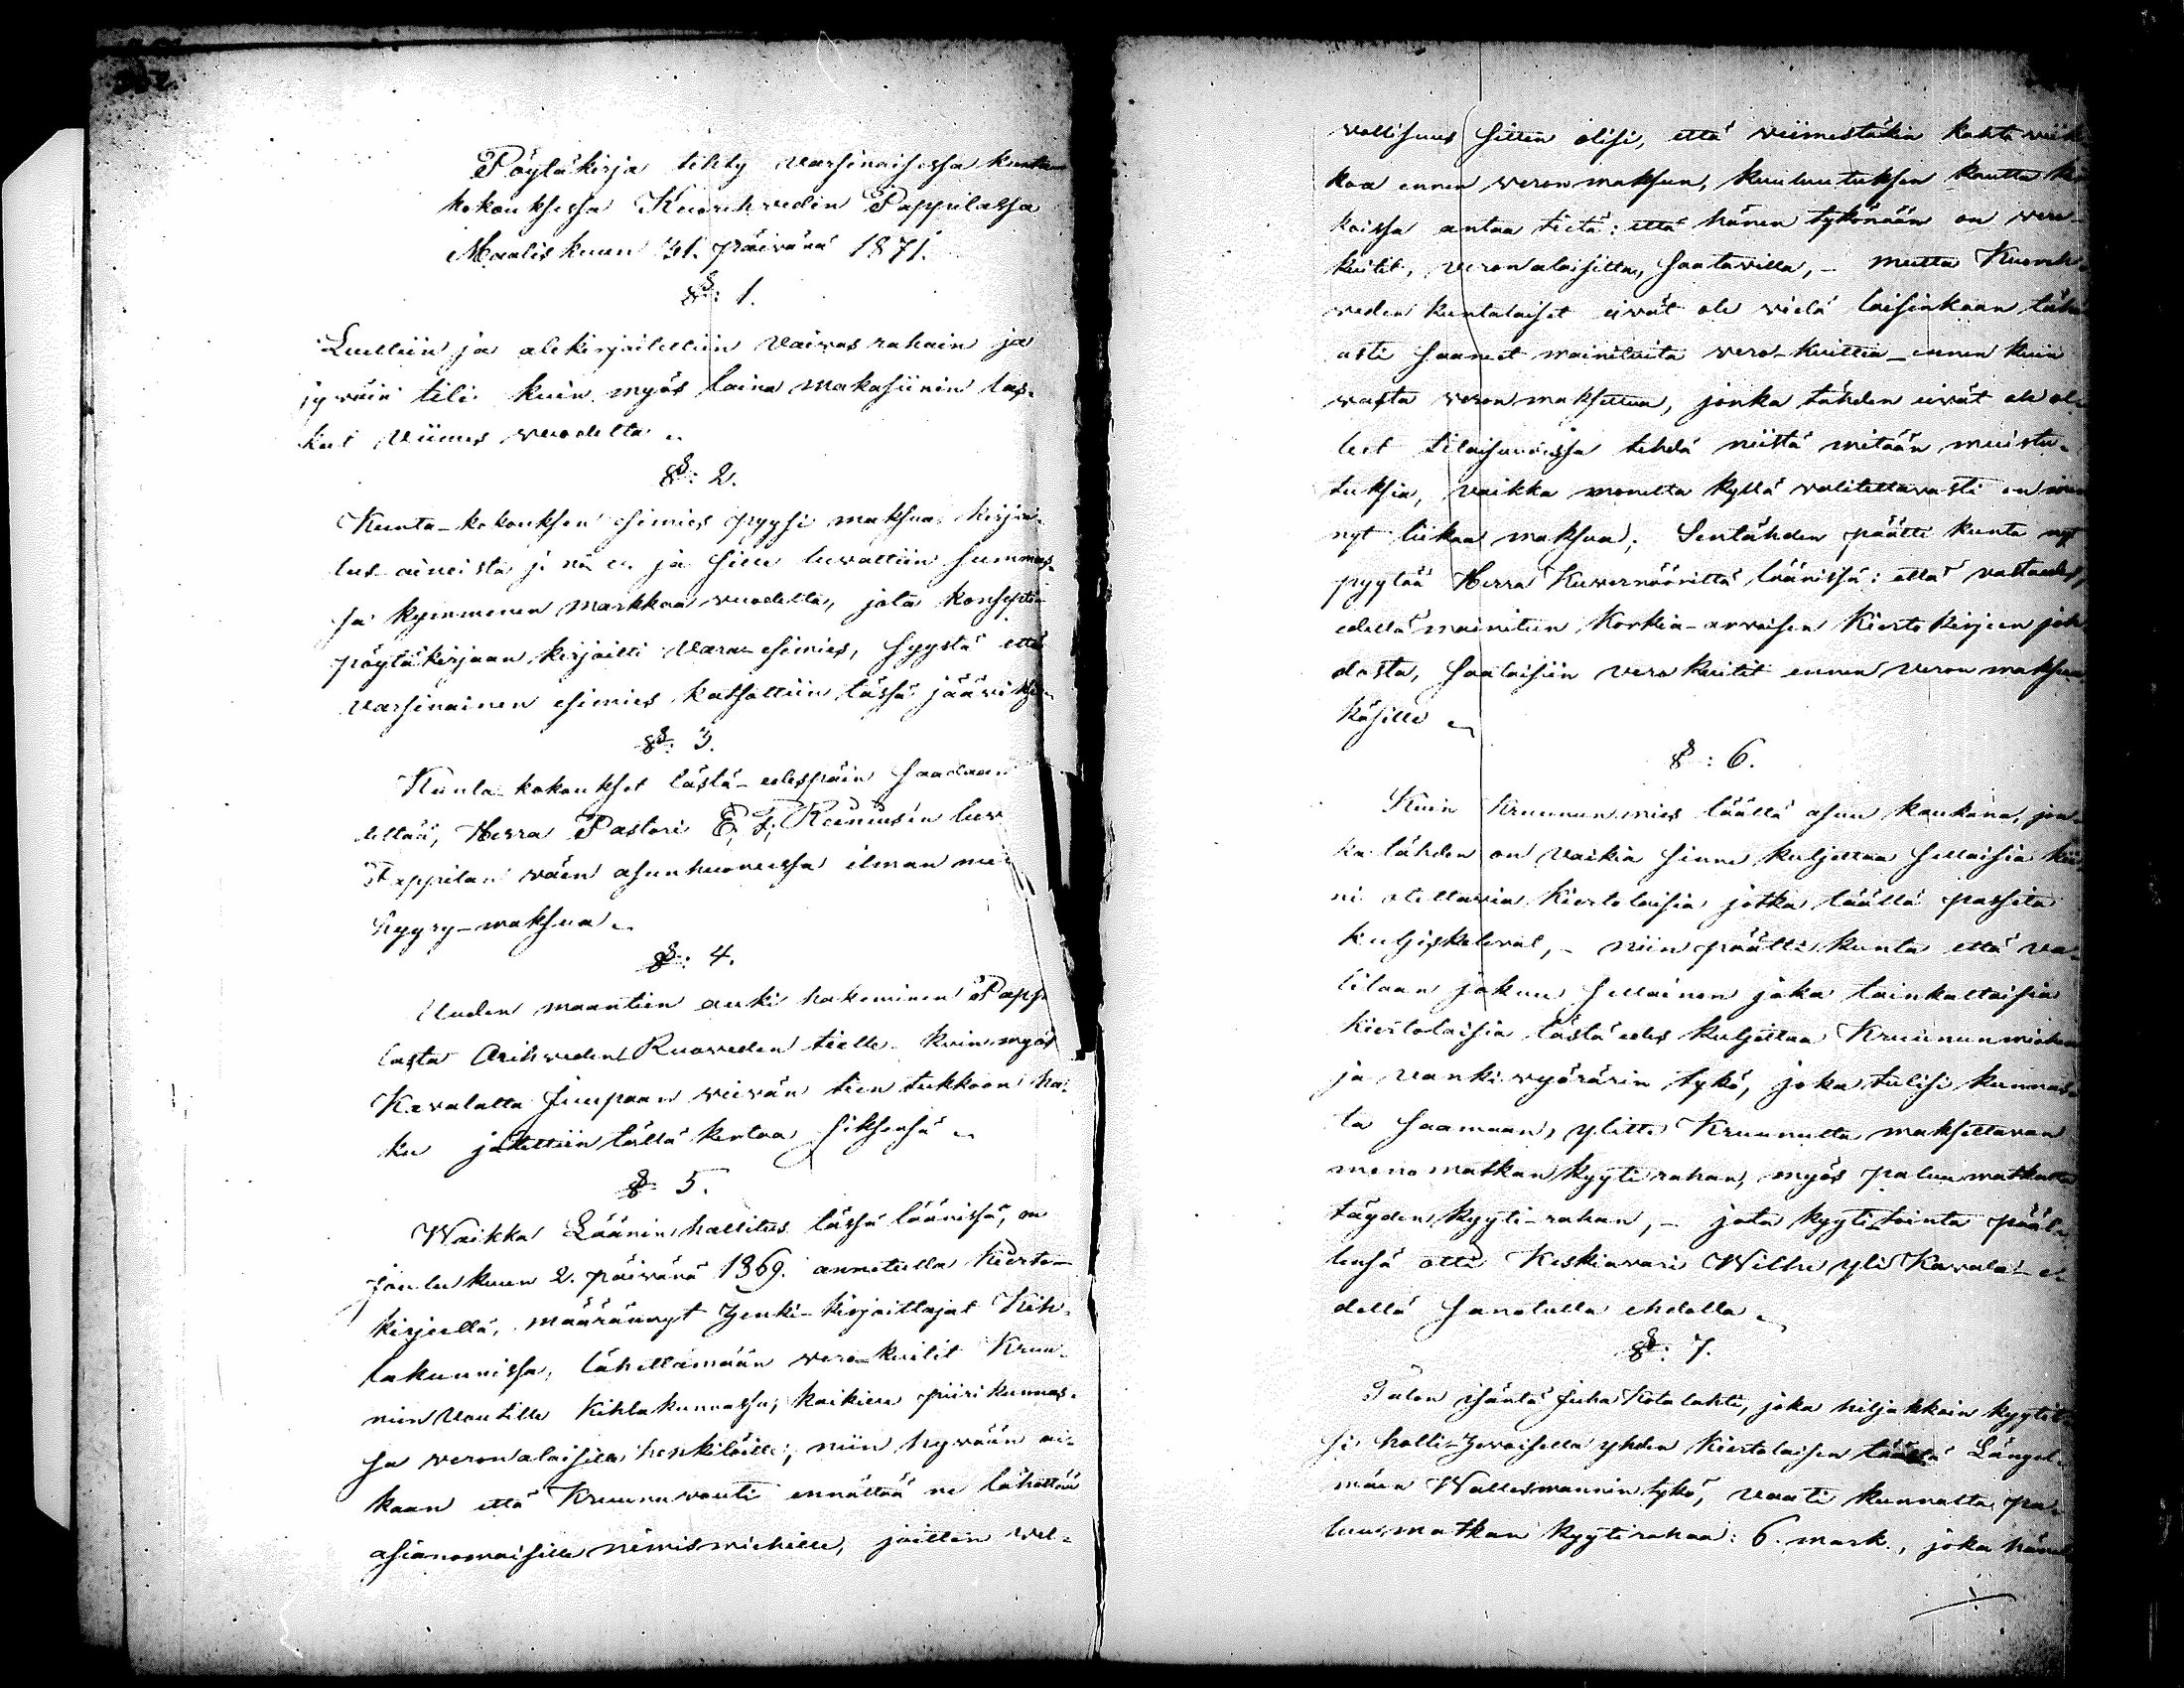 Pöytäkirja tehty varsinaisessa kunta
kokouksessa Kuorehveden Pappilassa
Maaliskuun 31. päivänä 1871.
§: 1.
Luettiin ja alekirjoitettiin Vaivasrahain ja
jyväin tili kuin myös laina makasiinin las-
kut viimes vuodelta.
§: 2.
Kunta-kokouksen esimies pyysi maksua kirjoi-
tus aineista ja sille luvattiin summas-
sa kymmenen markkaa vuodelta, jota
pöytäkirjaan kirjoitti Vara-esimies, syystä että
varsinainen esimies katsottiin tässä jääviksi
§: 3.
Kunta-kokoukset tästä-edespäin saadaan
Herra Pastori luv
Pappilan väen asunhuoneissa ilman
hyyry-maksua.
§: 4.
Uuden maantien auki hakeminen Papp
lasta Ruoveden tielle kuin myös
Kavalalta vievän tien tukkoon ha-
ku jätettiin tällä kertaa siksensä
§ 5.
Waikka Läänin hallitus tässä läänissä, on
joulukuun 2. päivänä 1869. annetulla kierto-
kirjeellä, määrännyt henki-kirjoittajat Kih-
lakunnissa, lähettämään vero-kuitit Kruu-
nun Voutille Kihlakunnassa, kaikille piirikunnas-
sa veronalaisille henkilöille, niin hyvään ai-
kaan että Kruunuvouti ennättää ne lähettää
asianomaisille nimismiehille, joitten vel-
vollisuus sitten olisi, että viimestäkin kahta viik
koa ennen veron maksun, kuuluutuksen kautta kir
koissa antaa tietä: että hänen tykönään on vero-
kuitit, veronalaisilta, saatavilla, - mutta Kuoreh-
veden kuntalaiset eivät ole vielä laisinkaan tähän
asti saaneet mainituita vero-kuittia ennen kuin
vasta veron maksettua, jonka tähden eivät ole ol-
leet tilaisuuessa tehdä niistä mitään muistu-
tuksia, vaikka monelta kyllä valitettavasti on
nyt liikaa maksua; Sentähden päätti kunta nyt
pyytää Herra Kuvernööriltä läänissä: että vastaedes,
edellä mainitun korkia-arvoisen Kiertokirjeen joh
dosta, saataisiin vero kuitit ennen veron maksua
käsille
§: 6.
Kuin Kruununmies täällä asuu kaukana, jon-
ka tähden on vaikia sinne kuljettaa sellaisia kii-
ni otettavia kiertolaisia jotka täällä passita
kuljeskelevat, - niin päätti kunta että va-
litaan jokuu sellainen joka tainkaltaisia
kiertolaisia tästä edes kuljettaa Kruununmiehen
ja vanki vyörärin tykö, joka tulisi kunnas-
ta saamaan, ylitte Kruunulta maksettavan
meno matkan kyyti rahan, myös paluu matkalta
täyden kyyti-rahan, - jota kyyti tointa pääl-
lensä otti Keskiavari Wilhe yli Kavala e-
dellä sanotulla ehdolla.
§: 7.
Talon isäntä Juha Kotalahti, joka hiljakkoin kyytit-
si holli-hevoisella yhden kiertolaisen täältä Längel-
mäen Wallesmannin tykö, vaati kunnalta pa-
luusmatkan kyytirahaa: 6. mark., joka hänel